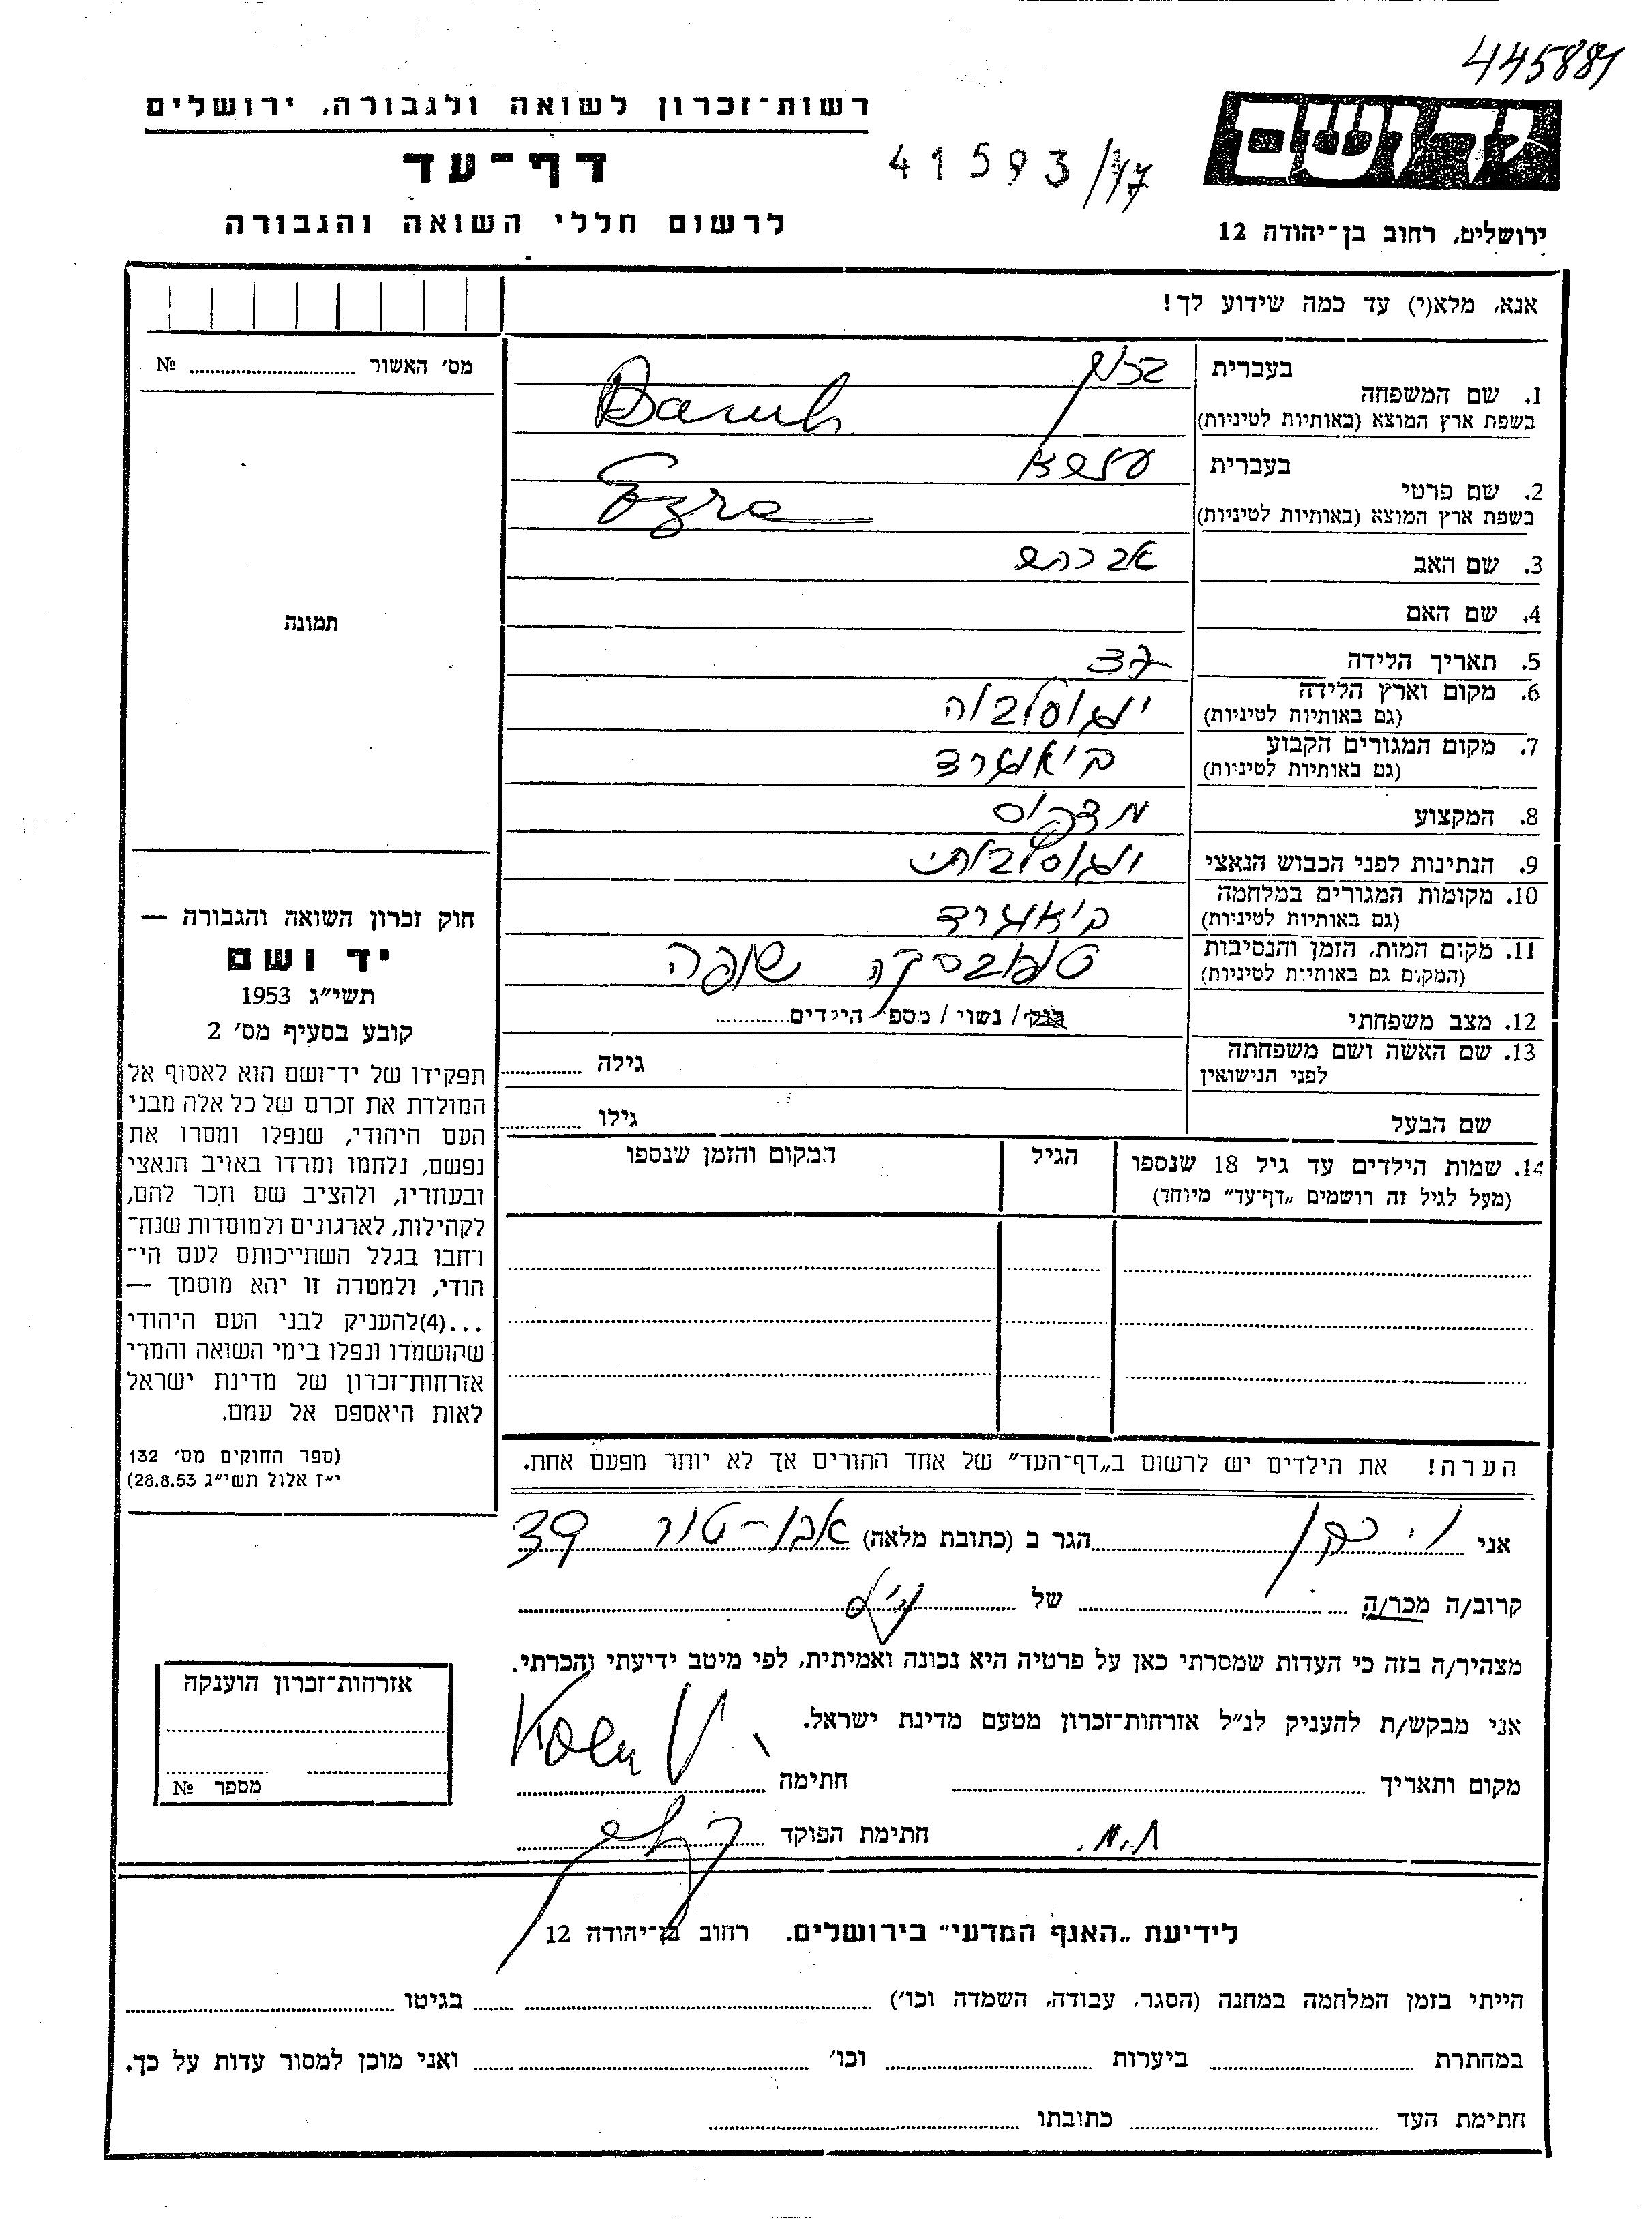 445881
רשות־זכרון לשואה ולגבורה, ירושלים
דף־עד
41593/77
לרשום חללי השואה והגבורה
ירושלים, רחוב בן־יהודה 12
אנא, מלא(י) עד כמה שידוע לך!
מס' האשור № 
1. שם המשפחה
בעברית
בשפת ארץ המוצא (באותיות לטיניות) Baruh
2. שם פרטי
בעברית עזרא
בשפת ארץ המוצא (באותיות לטיניות) Ezra
3. שם האב אברהם
4. שם האם
5. תאריך הלידה
6. מקום וארץ הלידה יוגוסלביה
(גם באותיות לטיניות)
7. מקום המגורים הקבוע ביאוגרד
(גם באותיות לטיניות)
8. המקצוע מדפיס
9. הנתינות לפני הכבוש הנאצי יוגוסלבית
10. מקומות המגורים במלחמה ביאוגרד
(גם באותיות לטיניות)
11. מקום המות, הזמן והנסיבות שופה
(המקום גם באותיות לטיניות)
12. מצב משפחתי רווק/ נשוי / מספר הילדים
13. שם האשה ושם משפחתה גילה
לפני הנישואין
שם הבעל גילו
14. שמות הילדים עד גיל 18 שנספו הגיל המקום והזמן שנספו
(מעל לגיל זה רושמים „דף־עד” מיוחד)
הערה! את הילדים יש לרשום ב„דף־העד” של אחד ההורים אך לא יותר מפעם אחת.
תמונה
חוק זכרון השואה והגבורה —
יד ושם
תשי״ג 1953
קובע בסעיף מס' 2
תפקידו של יד־ושם הוא לאסוף אל
המולדת את זכרם של כל אלה מבני
העם היהודי, שנפלו ומסרו את
נפשם, נלחמו ומרדו באויב הנאצי
ובעוזריו, ולהציב שם וזכר להם,
לקהילות, לארגונים ולמוסדות שנח־
רחבו בגלל השתייכותם לעם הי־
הודי, ולמטרה זו יהא מוסמך —
...(4)להעניק לבני העם היהודי
שהושמדו ונפלו בימי השואה והמרי
אזרחות־זכרון של מדינת ישראל
לאות היאספם אל עמם.
(ספר החוקים מס' 132
י״ז אלול תשי״ג 28.8.53)
אני הגר ב (כתובת מלאה) אבו-טור 39
קרוב/ה מכר/ה של
מצהיר/ה בזה כי העדות שמסרתי כאן על פרטיה היא נכונה ואמיתית, לפי מיטב ידיעתי והכרתי.
אני מבקש/ת להעניק לנ״ל אזרחות־זכרון מטעם מדינת ישראל.
מקום ותאריך חתימה Koen V.
חתימת הפוקד
אזרחות־זכרון הוענקה
מספר №
לידיעת „האגף המדעי” בירושלים. רחוב בן־יהודה 12
הייתי בזמן המלחמה במחנה (הסגר, עבודה, השמדה וכו') בגיטו
במחתרת ביערות וכו' ואני מוכן למסור עדות על כך.
חתימת העד כתובתו